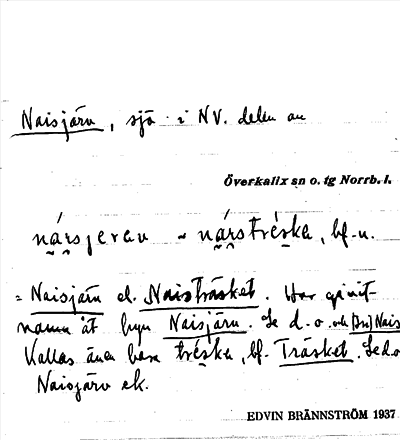 Naisjärv, sjö i NV. delen av
Överkalix sn o. tg Norrb. l.
nársjerav ~ nárstréska, bf.-n.
= Naisjärv el. Naisträsket. Har givit
namn åt byn Naisjärv. Se d. o. och [Bn] Nais
Kallas även bara tréska, bf. Träsket. Se d. o
Naisjärv ek.
EDVIN BRÄNNSTRÖM 1937